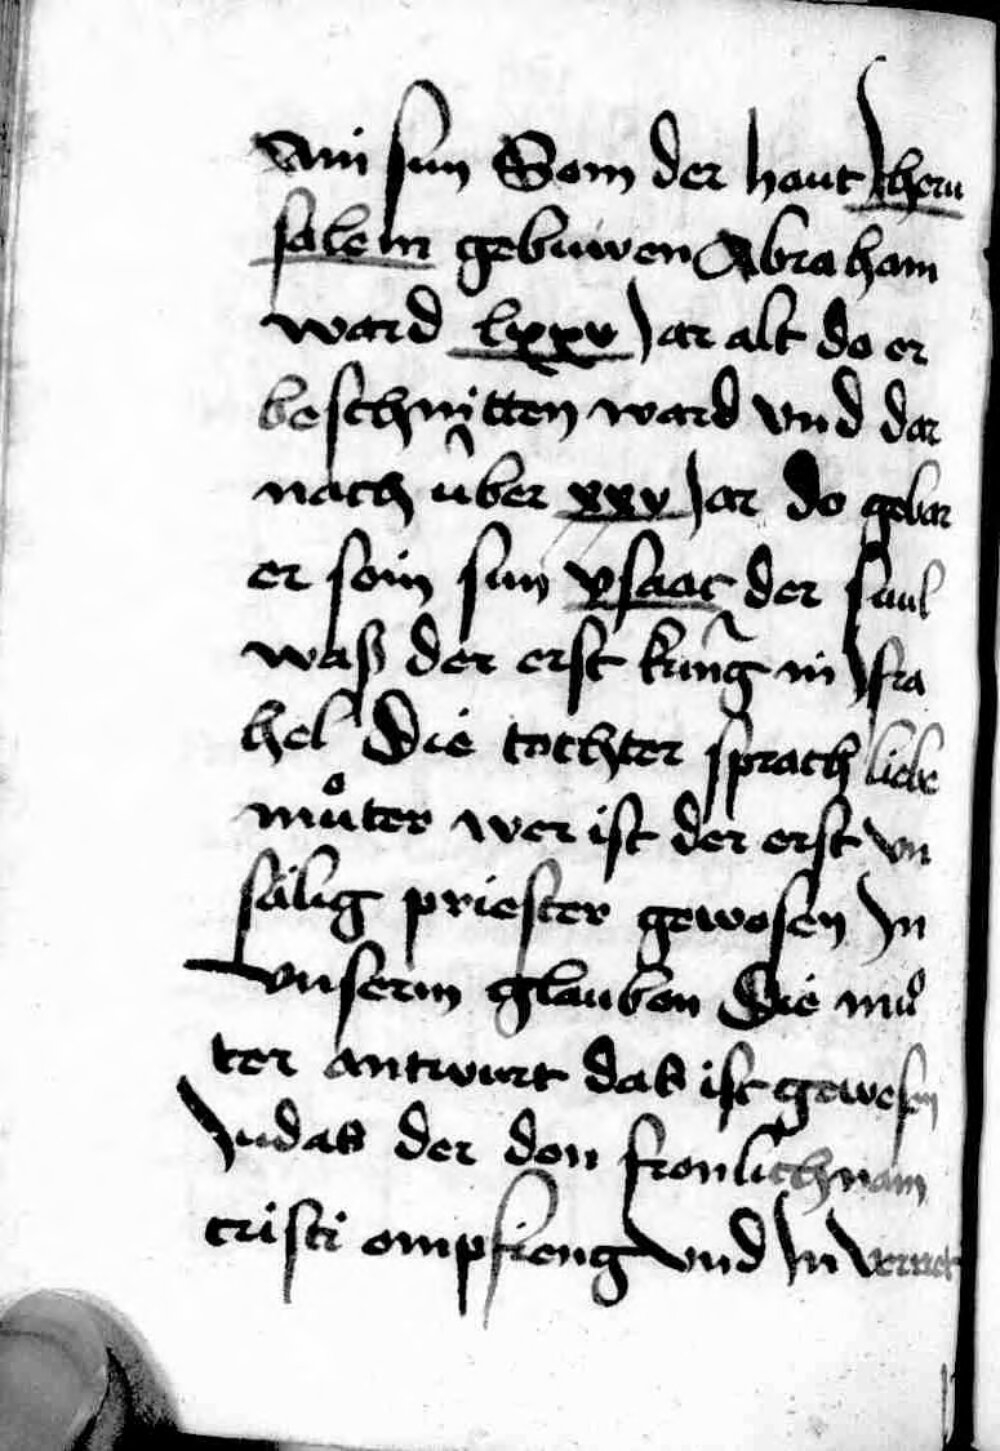 Ain sun Som der haut Jheru
salem gebuwen Abraham
ward lxxv Jar alt do er
beschnitten ward vnd dar
nach über xxv Jar do gebar
er sein sun ysaac der Saul
waß der erst küng in Jsra
hel Die tochter sprach liebe
můter wer ist der erst vn
sälig priester gewesen Jn
vnserm glauben Die mů
ter antwurt das ist gewesen
Judas der den fronlichnam
cristi empfieng vnd Jn verriet